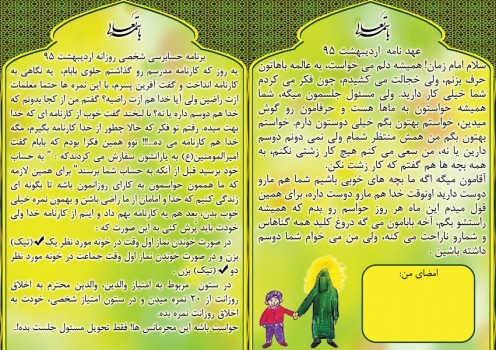 باسمه تعالی
عهد نامه اردیبهشت ۹۵
سلام امام زمان! همیشه دلم می خواست، یه عالمه باهاتون
حرف بزنم، ولی خجالت می کشیدم، چون فکر می کردم
شما خیلی کار دارید. ولی مسئول جلسمون میگه، شما
همیشه حواستون به ماها هست و حرفامون رو گوش
میدین. خواستم بهتون بگم خیلی دوستون دارم. خواستم
بهتون بگم من همش منتظر شمام ولی نمی دونم دوسم
دارین یا نه، من سعی می کنم هیچ کار زشتی نکنم، به
همه بچه ها هم گفتم که کار زشت نکن.
آقامون میگه اگه ما بچه های خوبی باشیم شما هم مارو
دوست دارید اونوقت خدا هم مارو دوست داره، برای همین
قول میدم این ماه هر روز حواسم رو بدم که همیشه
راستشو بگم، آخه بابامون می گه دروغ کلید همه گناهاس
و شمارو ناراحت می کنه، ولی من می خوام شما دوسم
داشته باشین.
امضای من:
باسمه تعالی
برنامه حسابرسی شخصی روزانه اردیبهشت ۹۵
یه روز که کارنامه مدرسم رو گذاشتم جلوی بابام، یه نگاهی به
کارنامه انداخت و گفت آفرین پسرم، با این نمره ها حتما معلمات
ازت راضین ولی آیا خدا هم ازت راضیه؟ گفتم من از کجا بدونم که
خدا هم دوسم داره یا نه؟ با لبخند گفت خوب از کارنامه ای که خدا
بهت میده. رفتم تو فکر که حالا چطور از خدا کارنامه بگیرم، مگه
خدا هم کارنامه می ده...!!! توو همین فکرا بودم که بابام گفت
امیرالمومنین(ع) به یارانشون سفارش می کردندکه : " به حساب
خود برسید قبل از آنکه به حساب شما برسند" برای همین لازمه
که ما هممون حواسمون به کارای روزانمون باشه تا بگونه ای
زندگی کنیم که خدا و امامان از ما راضی باشن و بهمون نمره خیلی
خوب بدن. بعد هم یه کارنامه بهم داد و اینم از کارنامه خدا ولی
خودت باید پُرش کنی به این صورت که :
در صورت خوندن نماز اول وقت در خونه مورد نظر یک ✔ (تیک)
بزن و در صورت خوندن نماز اول وقت جماعت در خونه مورد نظر
دو ✔ (تیک) بزن .
در ستون مربوط به امتیاز والدین، والدین محترم به اخلاق
روزانت از ۲۰ نمره میدن و در ستون امتیاز شخصی، خودت به
اخلاق روزانت نمره بده.
حواست باشه این محرمانس ها! فقط تحویل مسئول جلست بده!..